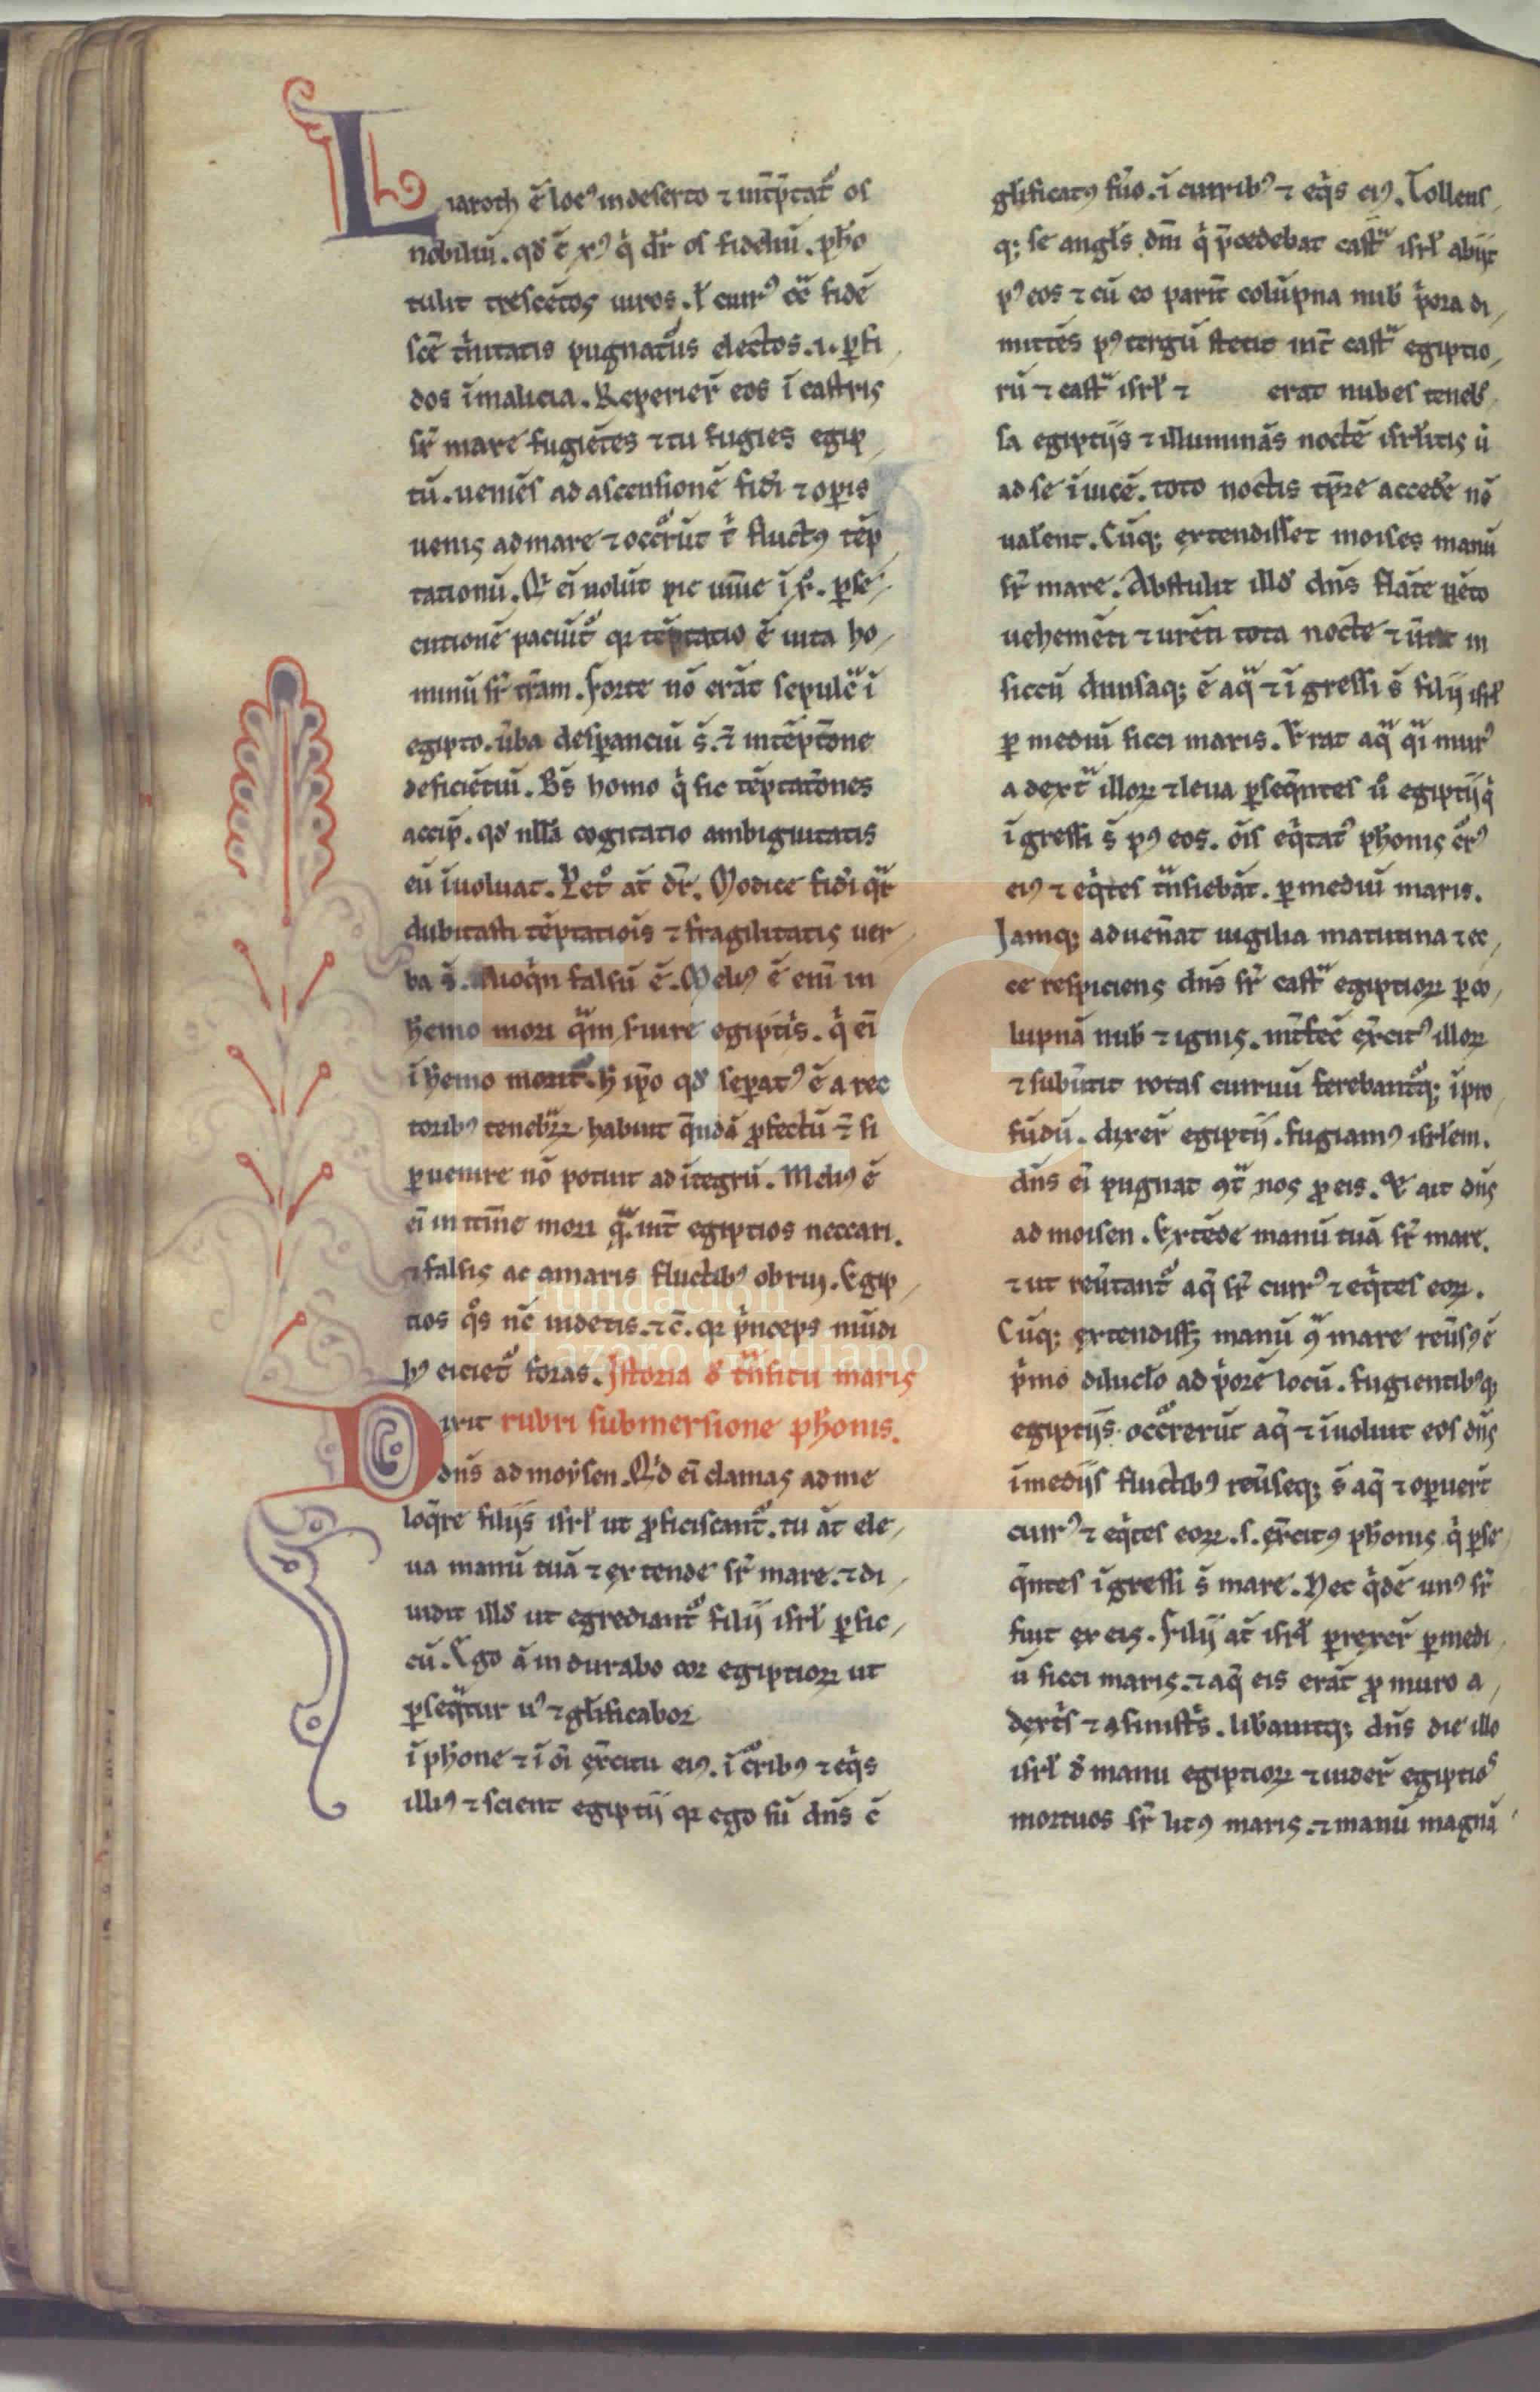 Liaroth ē loc᷒ in deserto ⁊ int̄p̄tat᷑ os
nobiliū. qd̄ ē xp̄c q̇ dr̄ os fideliū. pho
tulit trescētos uiros. ł curr᷒ cē fidē
sc̄e ṫnitatis pugnatur᷒s electos. ı. ꝑfi
dos ī malicia. Reperier̄ eos ī castris
sr̄ mare fugiētes ⁊ tu fugies egip
tū. ueniēs ad ascensionē fidi ⁊ opis
uenis ad mare ⁊ occ᷑rūt t̄ fluctꝰ tēp
tationū. Q̇ ei uolūt pie uiue ī x̄o. ꝑse
cutionē paciūt᷑ qꝛ tēptatio ē uita ho
minū sr̄ tr̄am. Forte nō erāt sepulc̄ ī
egipto. ūba despanciū s̄. ⁊ in tēptōne
deficiētiū. Bs̄ homo q̇ sic tēptatōnes
accip̄. qd̄ nll̄a cogitatio ambiguitatis
eū īuoluat. Pet᷑ᵒ at̄ dr̄. Modice fidi qr̄
dubitasti tēptatiois ⁊ fragilitatis uer
ba s̄. Alioq̇n falsū ē. Melꝰ ē eni in
h̄emo mori q̄m suire egiptis. q̇ ei
ī h̄emo morit᷑. h̄ ip̄o qd̄ sepatꝰ ē a rec
toribꝰ tenebꝝ habuit q̄ndā ꝓfectū ⁊ si
ꝑuenire nō potuit ad ītegrū. Melꝰ ē
ei in itin̄e mori q̄. int̄ egiptios neccari.
⁊ falsis ac amaris fluctibꝰ obrui. Egip
tios q᷒s nc̄ uidetis. ⁊c̄. qꝛ p̄nceps mūdi
hꝰ eiciet᷑ foras. Istoria d̄ tn̄situ maris
Dixit rubri submersione phonis.
dn̄s ad moysen. Qd̄ ei clamas ad me
loq̄re filiis isrł ut ꝓficiscant᷑. tu at̄ ele
ua manū tuā ⁊ extende sr̄ mare. ⁊ di
uidit illd̄ ut egrediant᷑ filij isrł ꝑ sic
cū. Ego ā indurabo cor egiptioꝝ ut
ꝑseq̄tur uꝰ ⁊ gl̄ificabor
ī phone ⁊ ī oi exc̄itu eiꝰ. ī c᷑ribꝰ ⁊ eq̇s
illiꝰ ⁊ scient egiptij qꝛ ego sū dn̄s c̄
gl̄ificatꝰ fu᷑o. ī curribꝰ ⁊ eq̇s eiꝰ. Tollens
q; se angl̄s dn̄i q̇ p̄cedebat castᵃ isrł abijt
pꝰ eos ⁊ cū eo parit̄ colūpna nub̄ ṗora di
mittēs pꝰ tergū stetit int̄ castᵃ egiptio
rū ⁊ castᵃ isrł ⁊ erat nubes teneb᷑
sa egiptijs ⁊ illuminās noctē isrłitis ū
ad se īuicē. toto noctis tp̄re accede᷑ nō
ualent. Cūq; extendisset moises manū
sr̄ mare. Abstulit illd̄ dn̄s flāte uēto
uehemēti ⁊ urēti tota nocte ⁊ ūtit in
siccū diuisaq; ē aqᵃ ⁊ īgressi s̄ filij isrł
ꝑ mediū sicci maris. Erat aqᵃ qᵃi murꝰ
a dextᵃ illoꝝ ⁊ leua ꝑseq̄ntes u᷑ egiptij q̇
īgressi s̄ pꝰ eos. ōis eq̇tatꝰ phonis c᷑rꝰ
eiꝰ ⁊ eq̇tes tn̄siebāt. ꝑ mediū maris.
Jamq; adueńat uigilia matutina ⁊ ec
ce respiciens dn̄s sr̄ castᵃ egiptioꝝ ꝑ co
lupnā nub̄ ⁊ ignis. int̄fec̄ exc̄itꝰ illoꝝ
⁊ subūtit rotas curruū ferebant᷑q; ī pro
fūdū. dixer̄ egiptij. fugiamꝰ isrłem.
dn̄s ei pugnat ꝯt̄ nos ꝓ eis. Et ait dn̄s
ad moisen. Extēde manū tuā sr̄ mare.
⁊ ut reūtant᷑ aq̄ sr̄ currꝰ ⁊ eq̇tes eoꝝ.
Cūq; extendiss; manū ꝯᵃ mare reūsꝰ ē
ṗmo dilucło ad ṗorē locū. fugientibꝰq;
egiptijs occ᷑rerūt aq̄ ⁊ īuoluit eos dn̄s
ī medijs fluctibꝰ reūseq; s̄ aq̄ ⁊ opuert̄
currꝰ ⁊ eq̇tes eoꝝ. s. exc̄itꝰ phonis q̇ ꝑse
q̄ntes īgressi s̄ mare. Nec q̇dē unꝰ sr̄
fuit ex eis. Filij at̄ isrł ꝑrexer̄ ꝑ medi
ū sicci maris. ⁊ aq̄ eis erāt ꝓ muro a
dextis ⁊ a sinistis. lib̄auitq; dn̄s die illo
isrł d̄ manu egiptioꝝ ⁊ uider̄ egiptioˢ
mortuos sr̄ litꝰ maris. ⁊ manū magnā